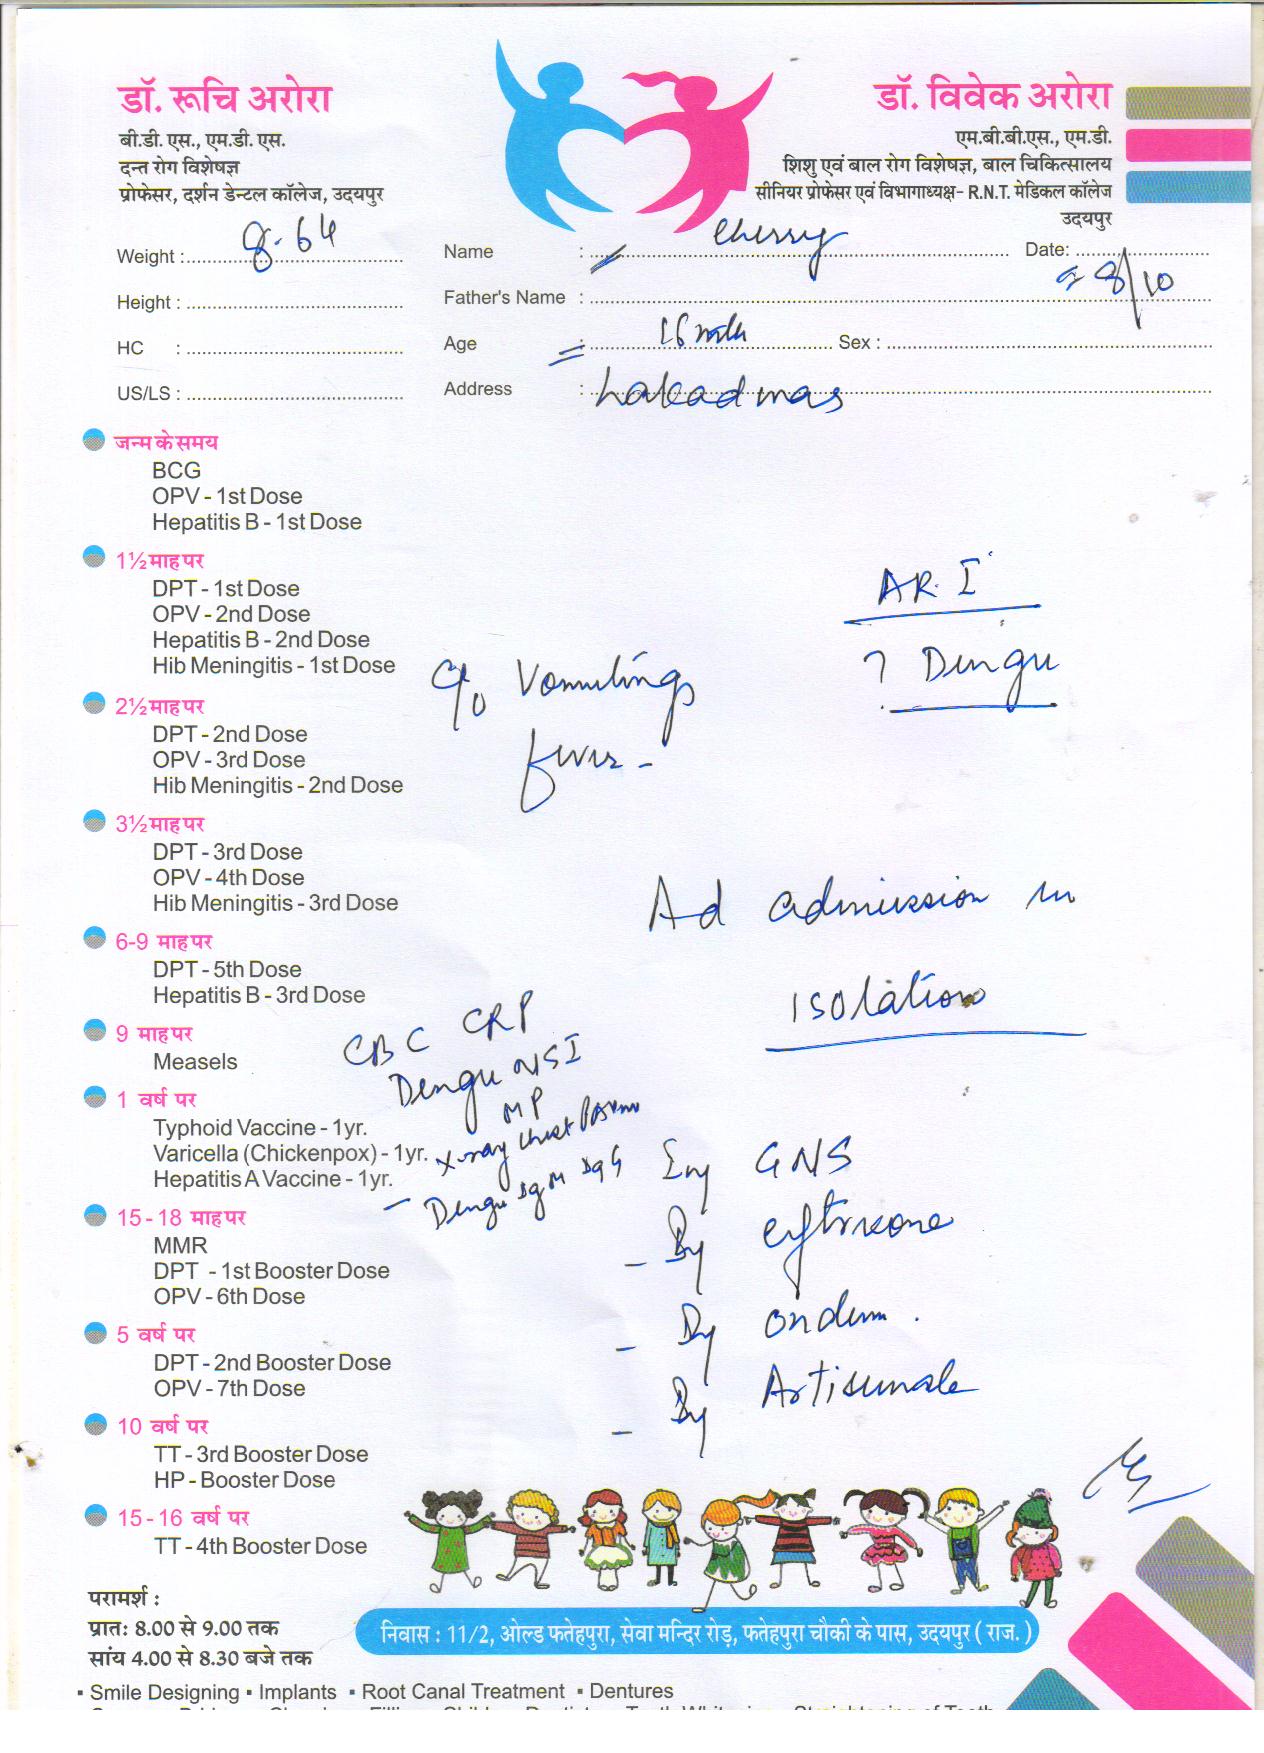 डॉ. रूचि अरोरा
बी.डी. एस., एम.डी. एस.
दन्त रोग विशेषज्ञ
प्रोफेसर, दर्शन डेन्टल कॉलेज, उदयपुर
डॉ. विवेक अरोरा
एम.बी.बी.एस., एम.डी.
शिशु एवं बाल रोग विशेषज्ञ, बाल चिकित्सालय
सीनियर प्रोफेसर एवं विभागाध्यक्ष- R.N.T. मेडिकल कॉलेज
उदयपुर
Weight : 8.64
Name : Cherry
Date: 8/10
Height :
Father's Name :
HC :
Age : 16 mth
Sex :
US/LS :
Address :
जन्म के समय
BCG
OPV - 1st Dose
Hepatitis B - 1st Dose
1½ माह पर
DPT - 1st Dose
OPV - 2nd Dose
Hepatitis B - 2nd Dose
Hib Meningitis - 1st Dose
2½ माह पर
DPT - 2nd Dose
OPV - 3rd Dose
Hib Meningitis - 2nd Dose
3½ माह पर
DPT - 3rd Dose
OPV - 4th Dose
Hib Meningitis - 3rd Dose
6-9 माह पर
DPT - 5th Dose
Hepatitis B - 3rd Dose
9 माह पर
Measels
1 वर्ष पर
Typhoid Vaccine - 1yr.
Varicella (Chickenpox) - 1yr.
Hepatitis A Vaccine - 1yr.
15 - 18 माह पर
MMR
DPT - 1st Booster Dose
OPV - 6th Dose
5 वर्ष पर
DPT - 2nd Booster Dose
OPV - 7th Dose
10 वर्ष पर
TT - 3rd Booster Dose
HP - Booster Dose
15 - 16 वर्ष पर
TT - 4th Booster Dose
A.R.I
? Dengu
C/o Vomitings
fever -
Ad admission in
isolation
CBC CRP
Dengu NSI
MP
X-ray Chest
- Dengu IgM IgG
GNS
- Inj
- Inj ondem.
- Inj Artisunate
परामर्श :
प्रातः 8.00 से 9.00 तक
सांय 4.00 से 8.30 बजे तक
निवास : 11/2, ओल्ड फतेहपुरा, सेवा मन्दिर रोड़, फतेहपुरा चौकी के पास, उदयपुर ( राज. )
▪ Smile Designing ▪ Implants ▪ Root Canal Treatment ▪ Dentures